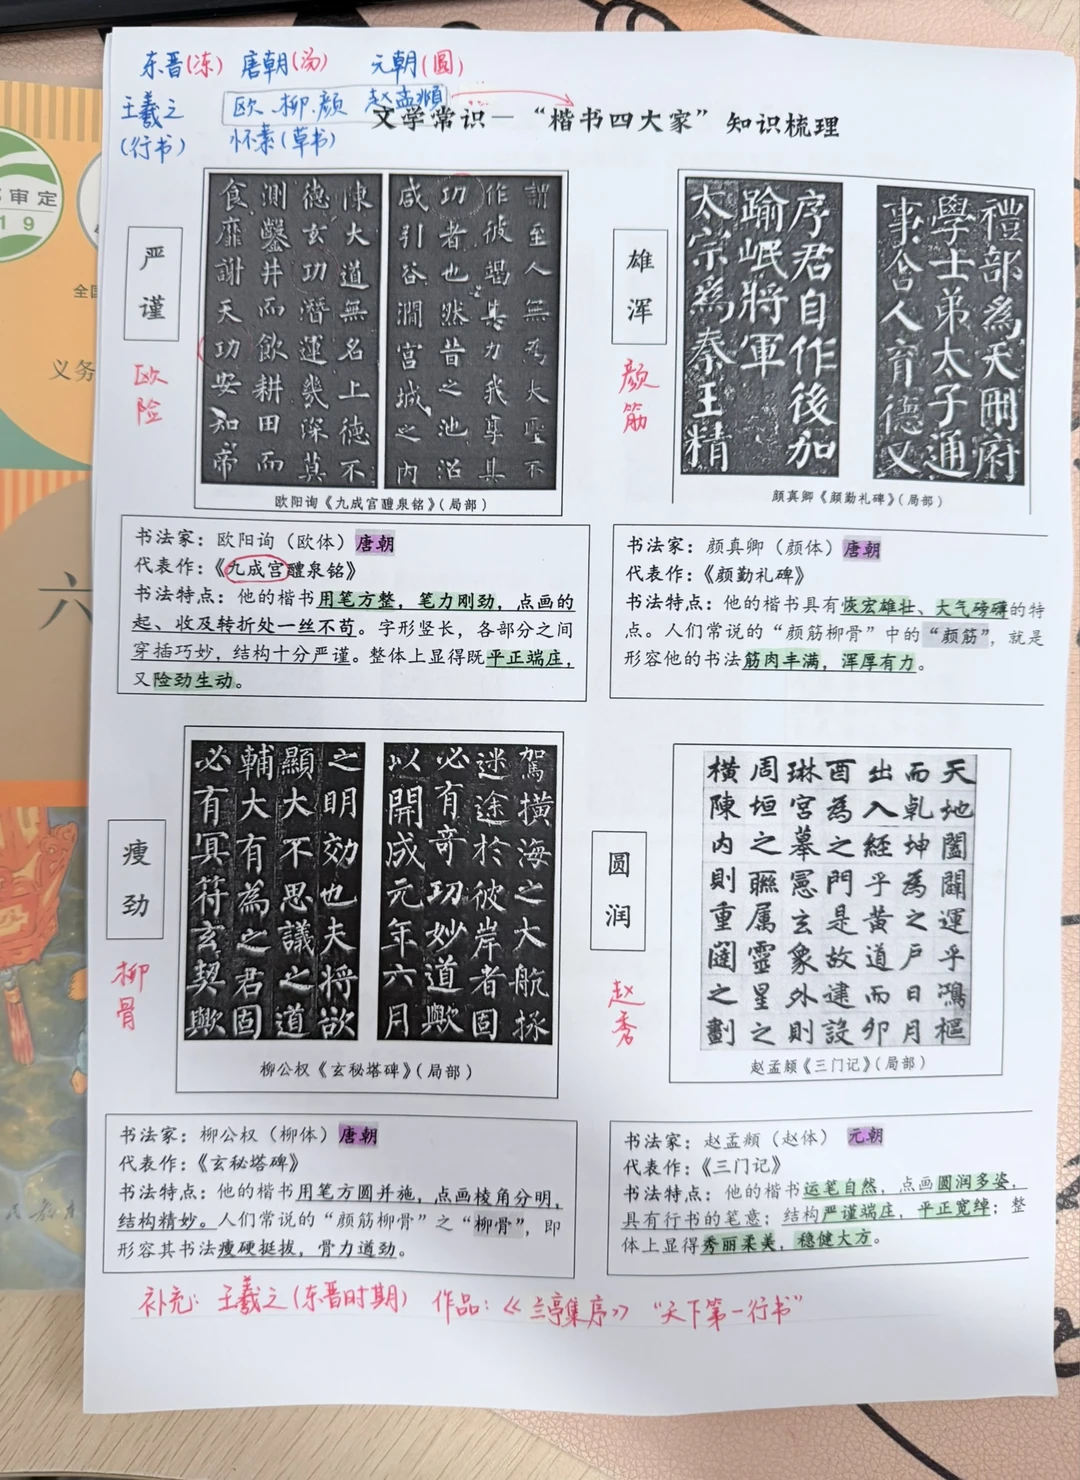 东晋(冻) 唐朝(汤) 元朝(圆)
王羲之 欧、柳、颜 赵孟頫
(行书) 怀素(草书)
文学常识—“楷书四大家”知识梳理
审定
19
全国
义务
六
民教
严谨
欧险
食靡謝天功安知帝
測鑿井而飲耕田而
德玄功潛運幾深莫
陳大道無名上德不
咸引谷澗宮城之內
功者也然昔之池沼
作彼竭其力我享其
謂至人無為大聖不
欧阳询《九成宫醴泉铭》(局部)
雄浑
颜筋
序君自作後加
踰岷將軍
太宗為秦王精
禮部為天冊府
學士弟太子通
事舍人育德又
颜真卿《颜勤礼碑》(局部)
书法家：欧阳询（欧体）唐朝
代表作：《九成宫醴泉铭》
书法特点：他的楷书用笔方整，笔力刚劲，点画的
起、收及转折处一丝不苟。字形竖长，各部分之间
穿插巧妙，结构十分严谨。整体上显得既平正端庄，
又险劲生动。
书法家：颜真卿（颜体）唐朝
代表作：《颜勤礼碑》
书法特点：他的楷书具有恢宏雄壮、大气磅礴的特
点。人们常说的“颜筋柳骨”中的“颜筋”，就是
形容他的书法筋肉丰满，浑厚有力。
瘦劲
柳骨
之明効也夫将欲
顯大不思議之道
輔大有為之君固
必有冥符玄契歟
駕橫海之大航拯
迷途於彼岸者固
必有奇功妙道歟
以開成元年六月
柳公权《玄秘塔碑》(局部)
圆润
赵秀
天地闔闢運乎鴻樞
而乾坤為之戶日月
出入經乎黃道而卯
酉為之門是故建設
琳宮摹憲玄象外則
周垣之聯属靈星之
橫陳內則重闥之劃
赵孟頫《三门记》(局部)
书法家：柳公权（柳体）唐朝
代表作：《玄秘塔碑》
书法特点：他的楷书用笔方圆并施，点画棱角分明，
结构精妙。人们常说的“颜筋柳骨”之“柳骨”，即
形容其书法瘦硬挺拔，骨力遒劲。
书法家：赵孟頫（赵体） 元朝
代表作：《三门记》
书法特点：他的楷书运笔自然，点画圆润多姿，
具有行书的笔意；结构严谨端庄，平正宽绰；整
体上显得秀丽柔美，稳健大方。
补充：王羲之(东晋时期) 作品：《兰亭集序》“天下第一行书”